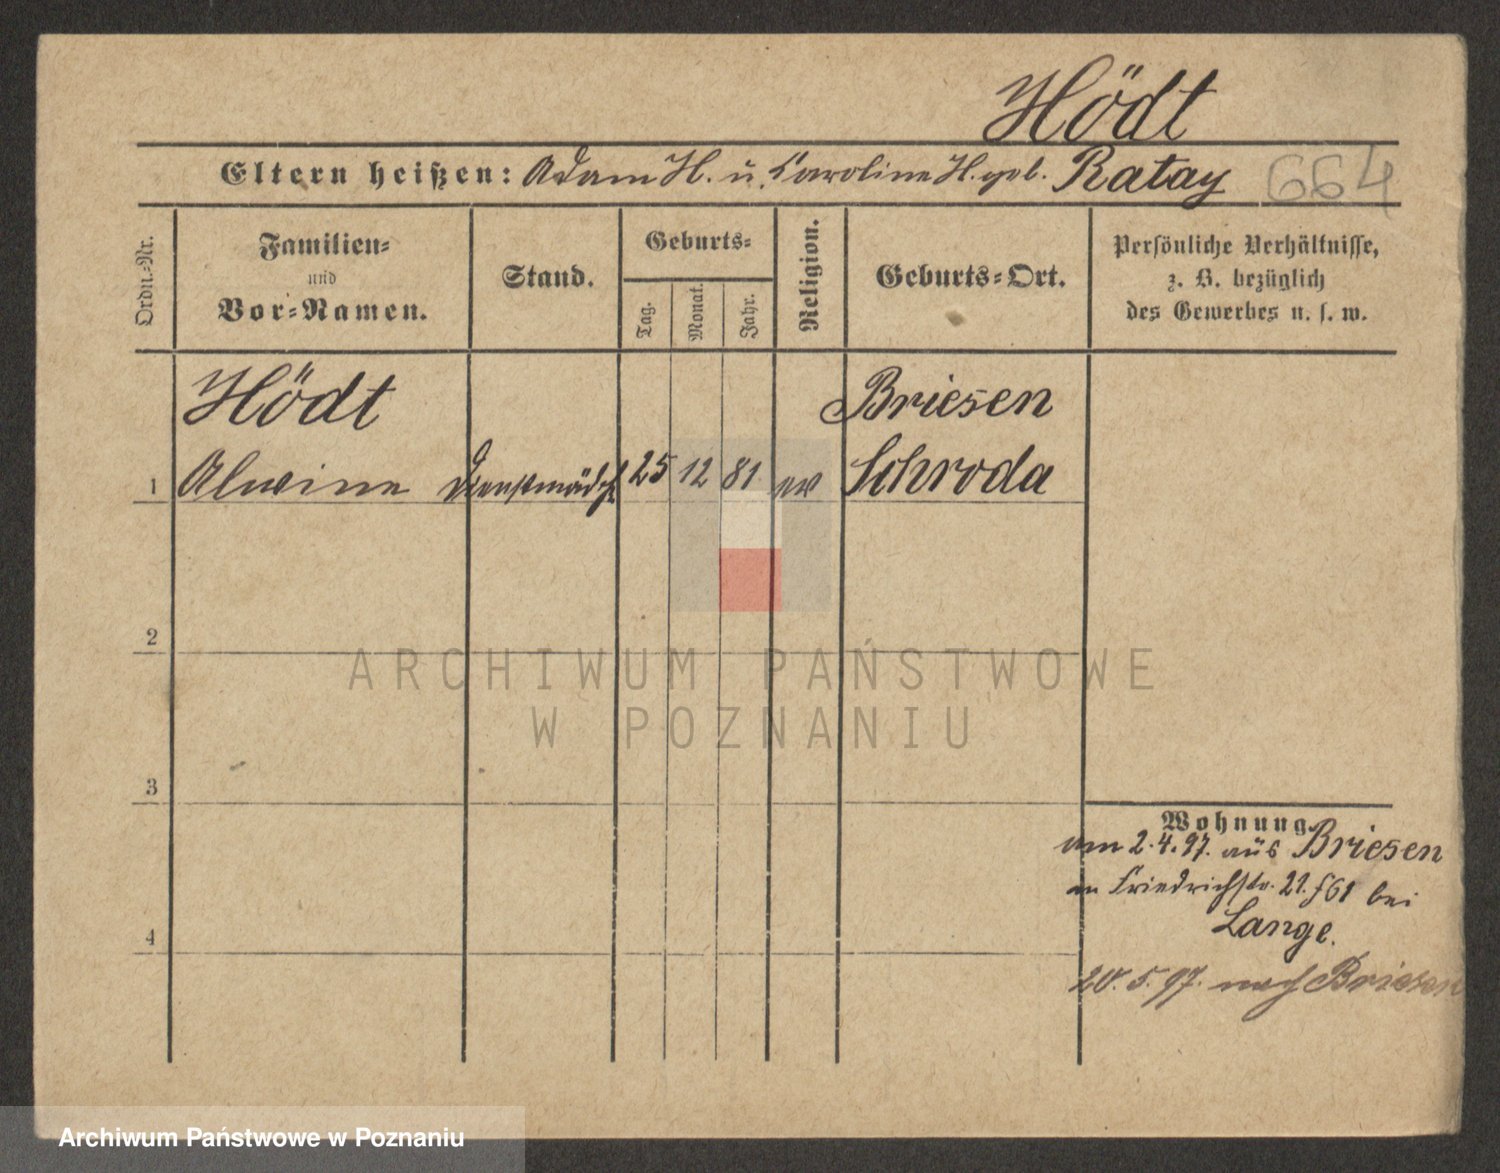 Hödt
Eltern heißen: Adam H. u. Caroline H. geb. Ratay 664
Ordn.=Nr.
Familien=
und
Vor=Namen.
Stand.
Geburts=
Tag.
Monat.
Jahr.
Religion.
Geburts=Ort.
Persönliche Verhältnisse,
z. B. bezüglich
des Gewerbes u. s. w.
Hödt Briesen
1 Alwine Dienstmädch 25 12 81 ev Schroda
2
ARCHIWUM PAŃSTWOWE
W POZNANIU
3
Wohnung
am 2.4.97. aus Briesen
Friedrichstr. 21. bei
Lange.
4
20.5.97. nach Briesen
Archiwum Państwowe w Poznaniu